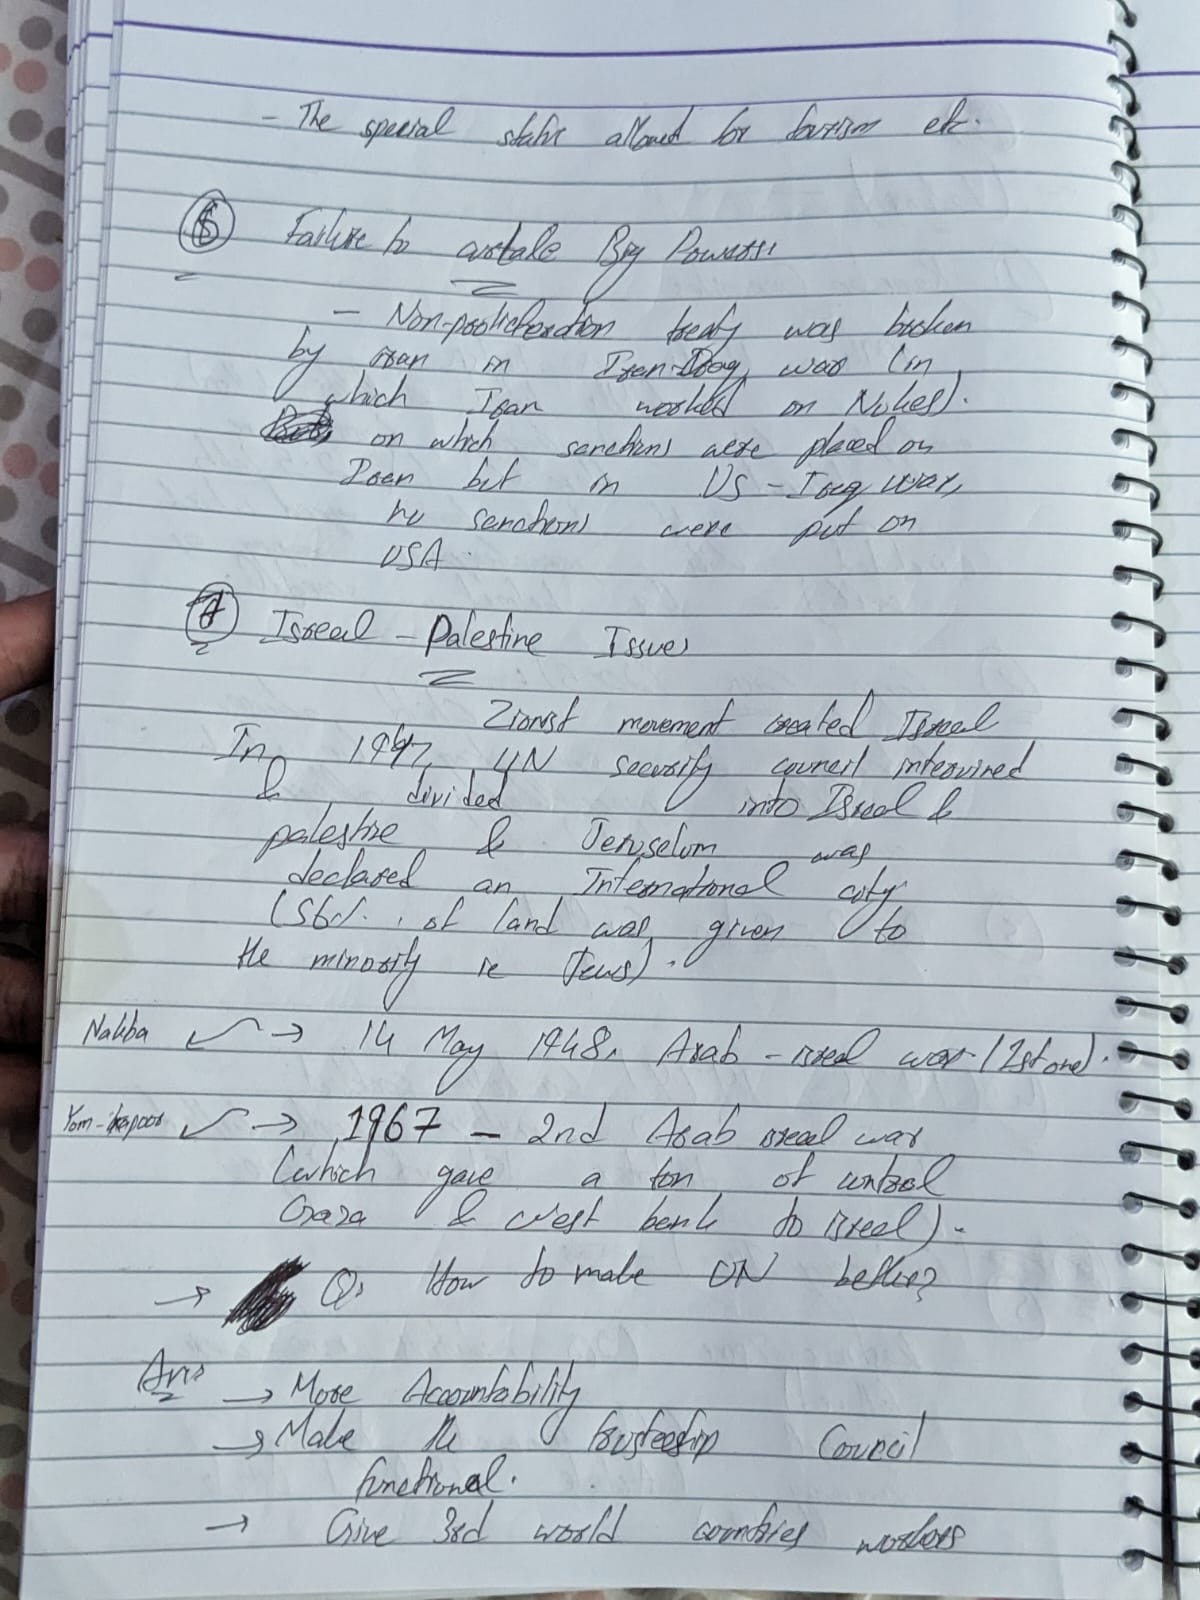 - The special state allowed for tourism etc.
⑥ Failure to curtale Big Powers:
- Non-prolicheration treaty was broken
by iran in Iran-Iraq war (in
which Iran worked on Nukes).
on which sanctions were placed on
Iran but in US - Iraq war,
no sanctions were put on
USA.
⑦ Isreal - Palestine Issues
Zionist movement created Isreal
In 1947, UN security council intervined
& divided into Isreal &
palestine & Jeruselum was
declared an International city
(56% of land was given to
the minority ie Jews).
Nakba → 14 May 1948, Arab - isreal war (1st one).
Yom-kapoor → 1967 - 2nd Arab isreal war
(which gave a ton of control
Gaza & west bank to isreal).
→ Q: How to make UN better?
Ans → More Accountability
→ Make the trusteeship Council
functional.
→ Give 3rd world countries workers